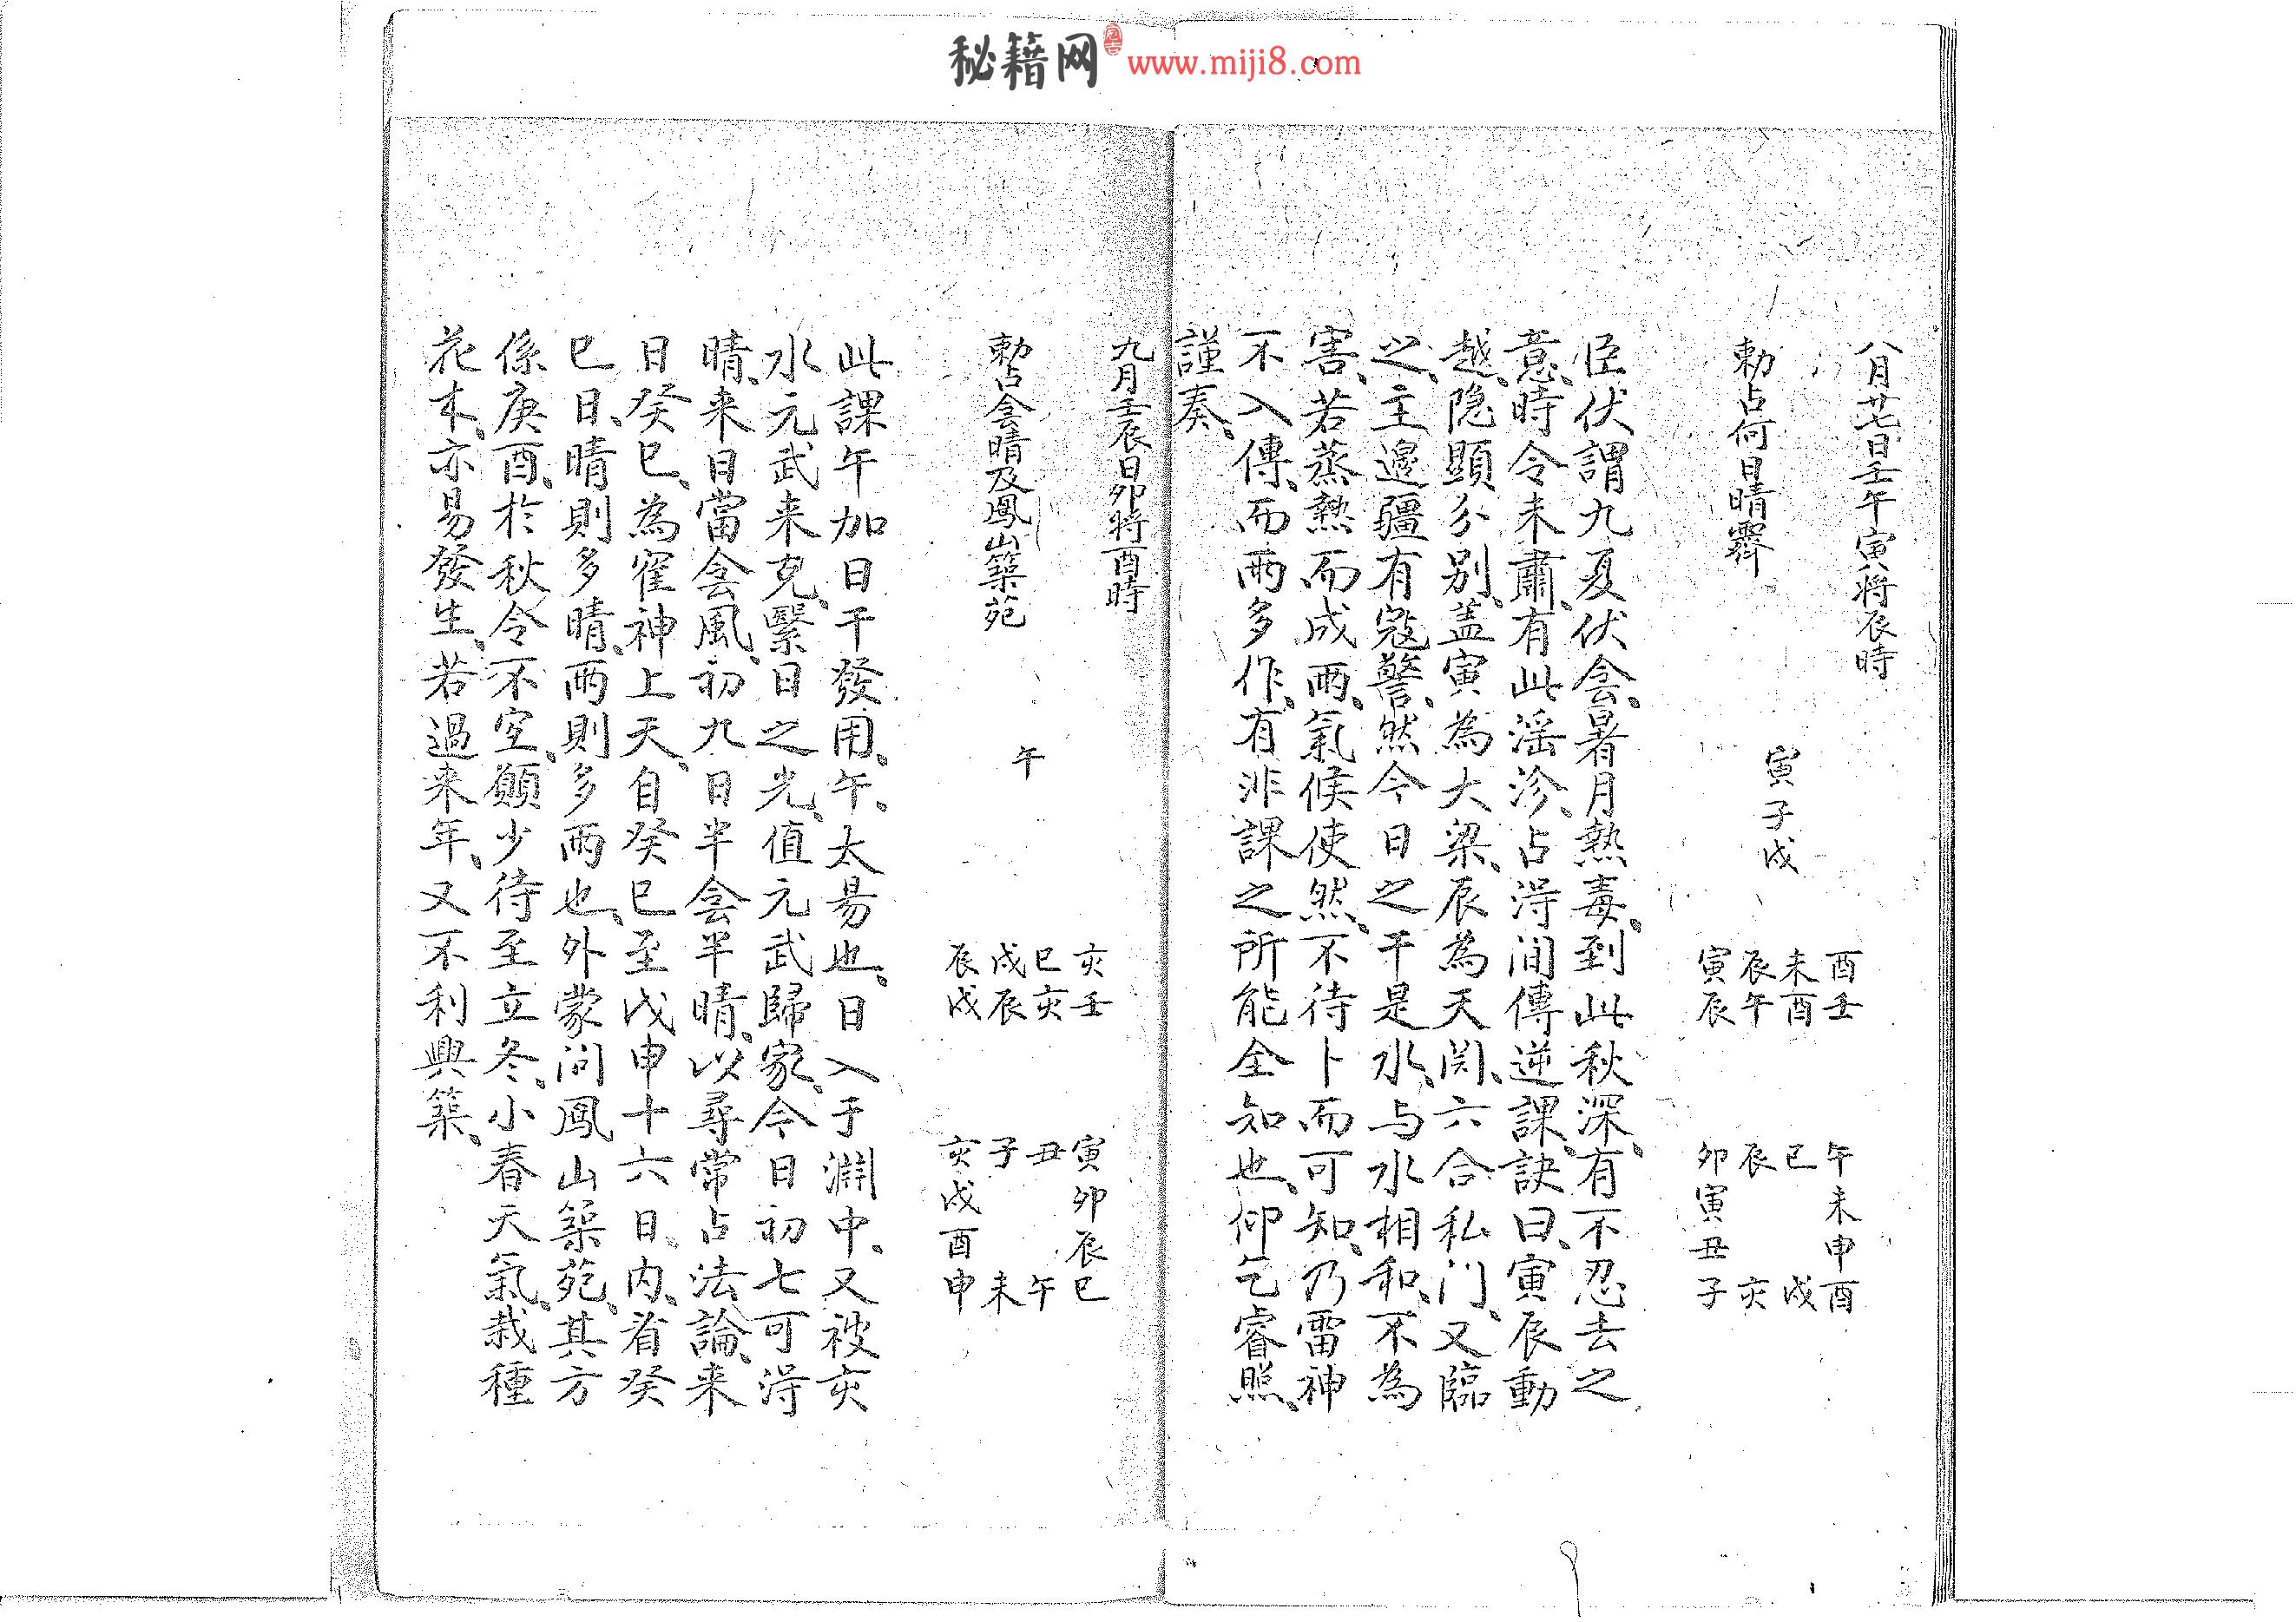 秘籍网 www.miji8.com
八月廿七日壬午寅将辰時
勅占何日晴霽
寅子戌
酉未辰寅
壬酉午辰
午未申酉
巳戌
辰亥
卯寅丑子
臣伏謂九夏伏侌、暑月熱毒、到此秋深、有不忍去之
意、時令未肅、有此滛沴、占淂间傳逆課、訣曰、寅辰動
越、隐顕分别、盖寅為大梁、辰為天関、六合私门、又臨
之、主邉疆有寇警、然今日之干是水、与水相和、不為
害、若蒸熱而成雨、氣候使然、不待卜而可知、乃雷神
不入傳、而雨多作、有非課之所能全知也、仰乞睿照、
謹奏、
九月壬辰日卯将酉時
勅占侌晴及鳳山築苑
午
亥巳戌辰
壬亥辰戌
寅卯辰巳
丑午
子未
亥戌酉申
此課午加日干發用、午、太昜也、日入于淵中、又被亥
水元武来克、緊日之光、值元武歸家、今日初七可淂
晴、来日當侌風、初九日半侌半晴、以尋常占法論、来
日癸巳、為窂神上天、自癸巳至戊申十六日、内、看癸
巳日、晴則多晴、雨則多雨也、外蒙问鳳山築苑、其方
係庚酉、於秋令不空、願少待至立冬、小春天氣、栽種
花木、亦易發生、若過来年、又不利興築、